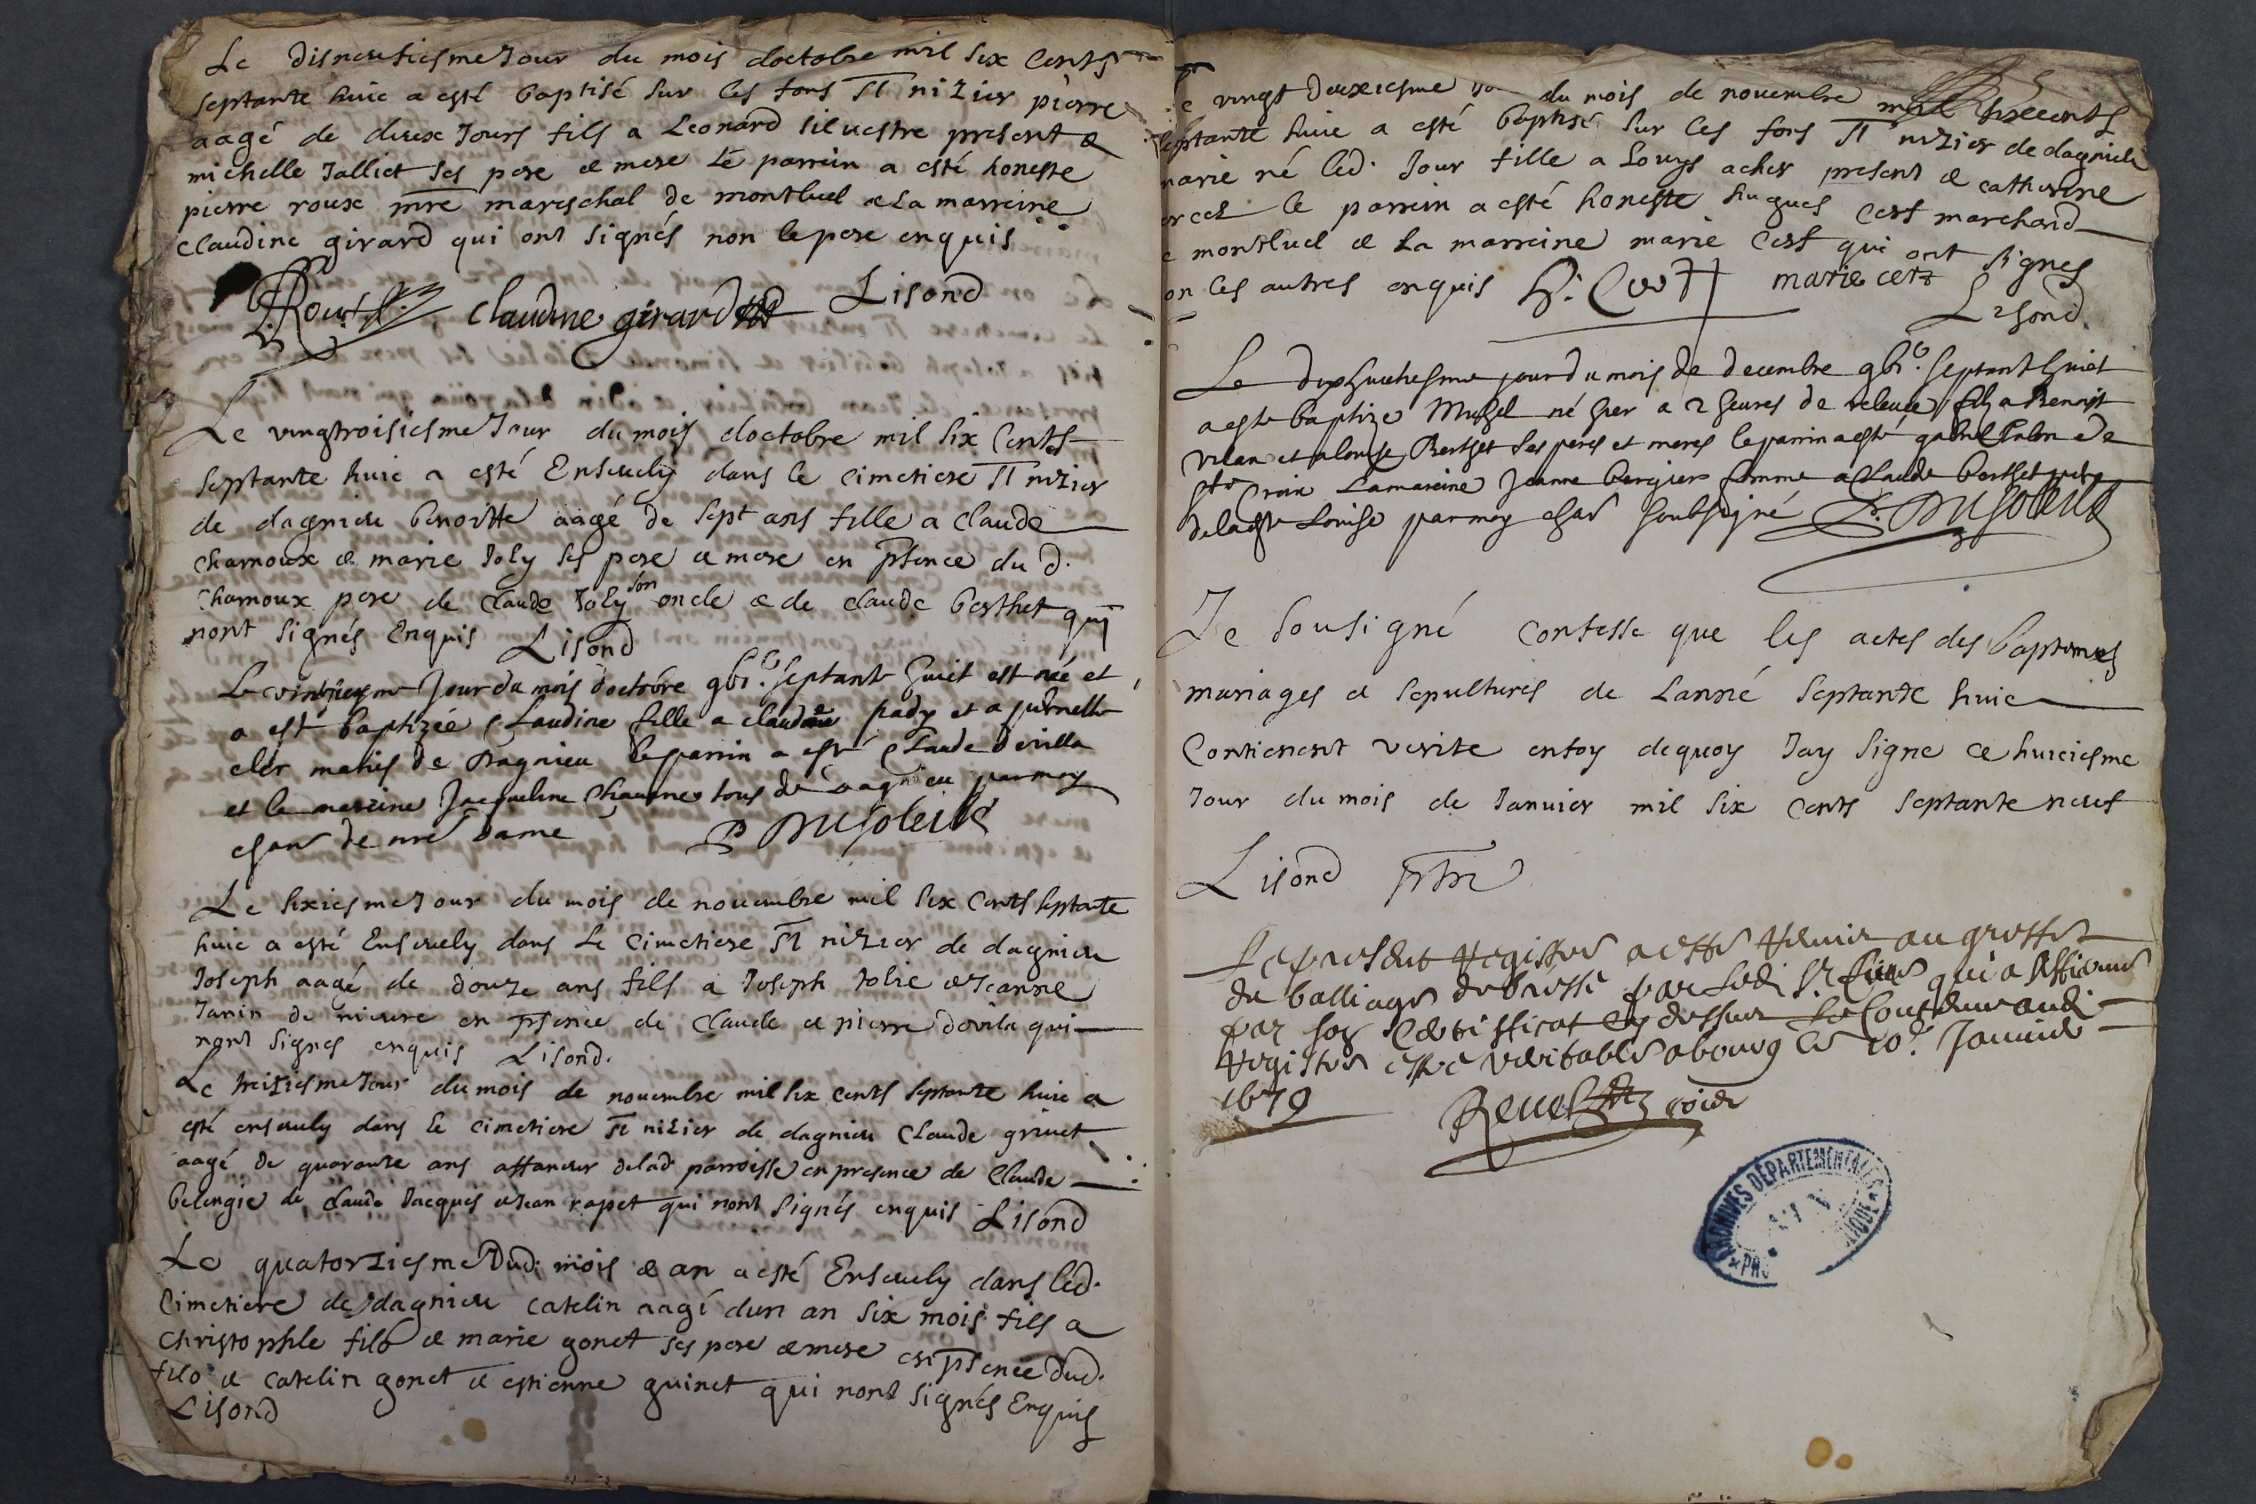 Le disneufiesme Jour du mois doctobre mil six cents
septante huic a esté baptisé sur les fons St nizier pierre
aagé de deux Jours fils a Leonard silvestre present &
michelle Jalliet ses pere & mere Le parrein a esté honeste
pierre roux mre mareschal de montluel & La marreine
Claudine girard qui ont signés non le pere enquis
P. Roux claudine girard Lisond
Le vingtroisiesme Jour du mois doctobre mil six Cents
septante huic a esté Ensevely dans le cimetiere St nizier
de dagnieu benoitte aagé de sept ans fille a claude
charnoux & marie Joly ses pere & mere en psence du d.
charnoux pere de claude Joly son oncle & de claude berthet qui
nont signés Enquis Lisond
Le jour du mois doctobre gbic septante huict est née et
a esté baptizée Claudine fille a claude pady et a pernette
cler mariés de Dagnieu le parrin a esté Claude devilla
et la mareine Jacqueline tous de dagnieu par moy
chan de nre Dame P Dusoleil
Le sixiesme Jour du mois de novembre mil six cents septante
huic a esté Ensevely dans Le cimetiere St nizier de dagnieu
Joseph aagé de douze ans fils a Joseph Jolie & Jeanne
Janin de nievre en psence de claude & pierre devila qui
nont signes enquis Lisond.
Le treiziesme Jour du mois de novembre mil six cents septante huic a
esté ensevely dans le cimetiere St nizier de dagnieu Claude grinet
aagé de quarante ans affaneur delad parroisse en presence de Claude
belengie de claude Jacques & Jean rapet qui nont signés enquis Lisond
Le quatorziesme Dud. mois & an a esté Ensevely dans led.
Cimetiere de dagnieu catelin aagé dun an six mois fils a
christophle filo & marie gonet ses pere & mere en psence Dud.
filo & catelin gonet & estienne guinet qui nont signés Enquis
Lisond
Le vingt deuxiesme du mois de novembre mil six cents
septante huic a esté baptisé sur les fons St nizier de dagnieu
marie né led. Jour fille a Louys acher present & catherine
le parrein a esté honeste hugues cerf marchand
de montluel & La marreine marie cerf qui ont signes
non les autres enquis h. Cerf marie cerf
Lisond.
Le dixhuictiesme jour du mois de decembre gbic septant huict
a esté baptizé Michel né hier a 2 heures de relevee filz a Benoist
et a Louise Berthet ses peres et meres le parrin a esté gabriel de
Ste Croix La mareine Jeanne bergier femme a Claude berthet
de lad Louise par moy chan soubsigné P. Dusoleil
Je sousigné confesse que les actes des baptemes
mariages & sepultures de Lanné septante huic
Contienent verite enfoy dequoy Jay signe ce huiciesme
Jour du mois de Janvier mil six cents septante neuf
Lisond ptre
Le present registre a esté remis au greffe
du balliage de bresse par led. sr curé qui a affirmé
par son certifficat cy dessus le contenu audi
registre estre veritable a bourg le 10e Janvier
1679
ARCHIVES DÉPARTEMENTALES